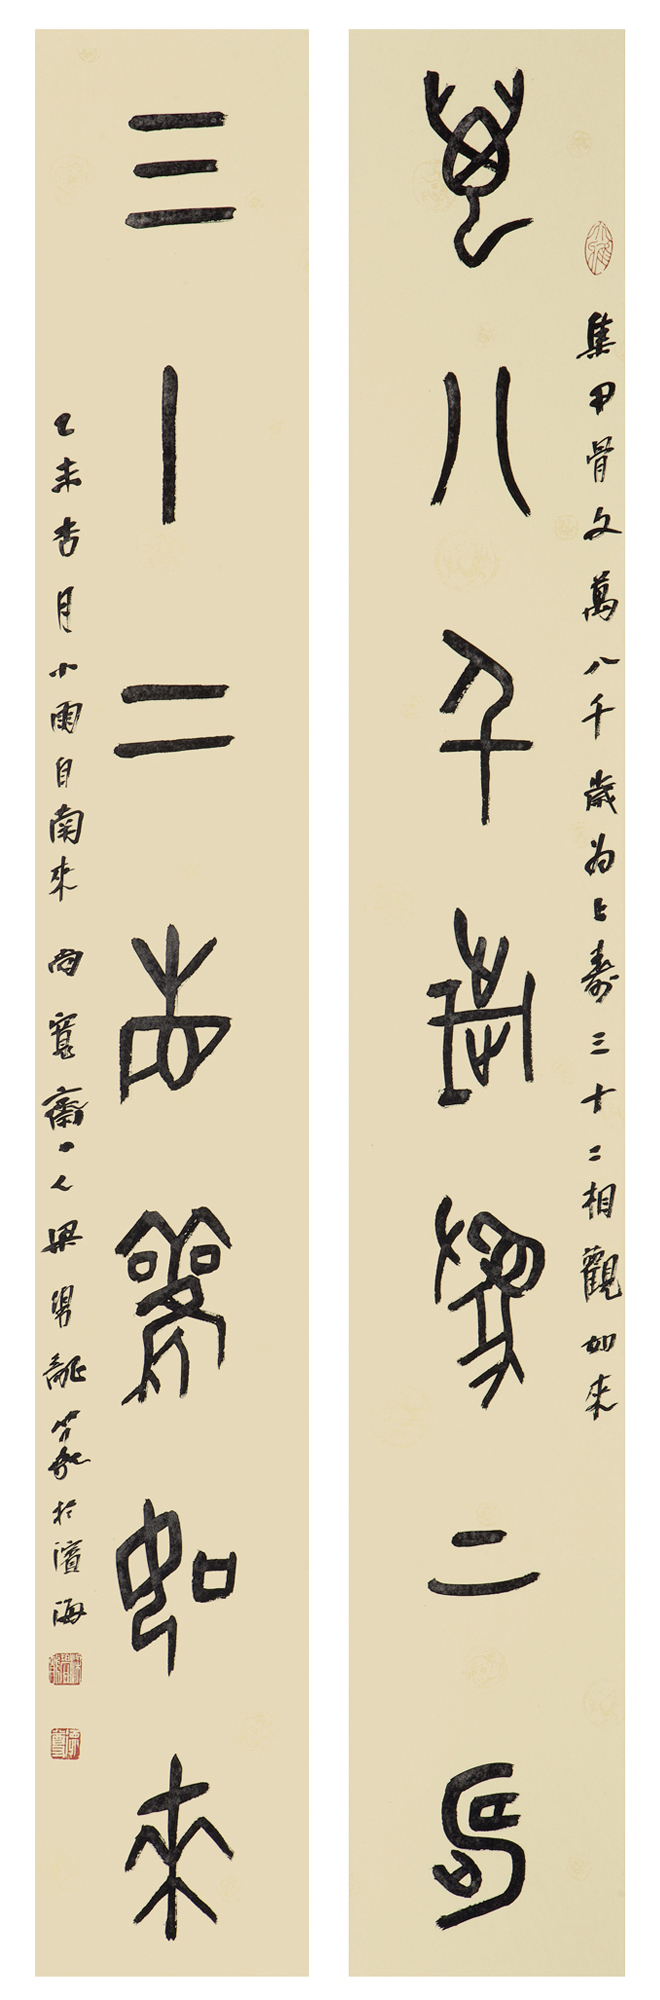 集甲骨文萬八千歲為上壽三十二相觀如來
萬八千歲為上壽
三十二相觀如來
乙未杏月小雨自南來尚寬齋人梁篆於濱海